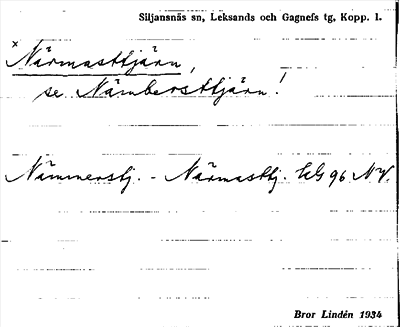 Siljansnäs sn, Leksands och Gagnefs tg, Kopp. l.
×Närmasttjärn,
se Nämbersttjärn!
Nämmerstj. - Närmasttj. EkG 96 NV.
Bror Lindén 1934